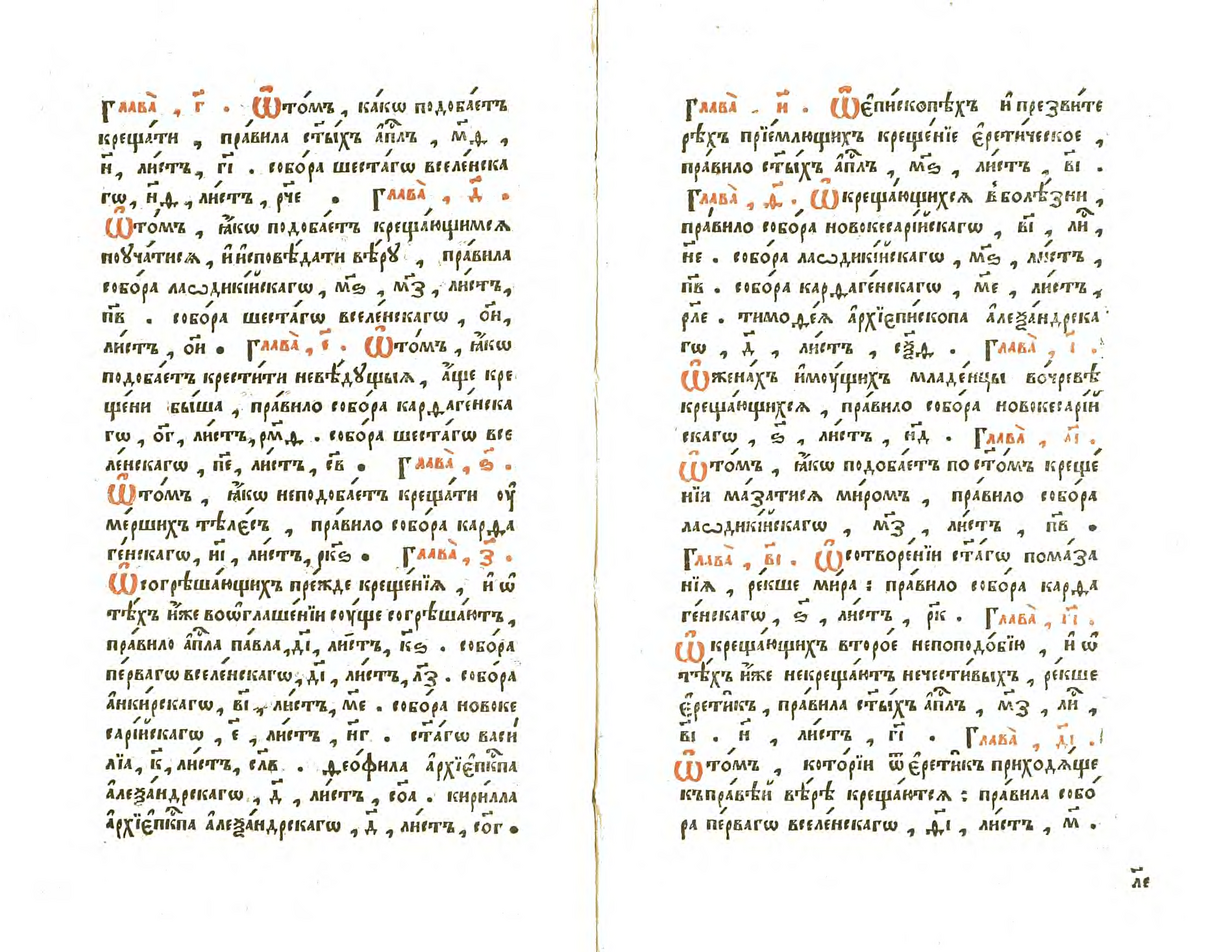 Глава̀ , г҃ . Ѿто́мъ , ка́кѡ подоба́етъ
креща́ти , пра́вила ст҃ы́хъ а҆пⷭ҇лъ , м҃ѳ ,
н҃ , ли́стъ , г҃і . собо́ра шеста́гѡ вселе́нска
гѡ , н҃ѳ , ли́стъ , рч҃е . Глава̀ , д҃ .
Ѿто́мъ , ꙗ҆́кѡ подоба́етъ креща́ющимсѧ
поꙋча́тисѧ , и҆и҆сповѣ́дати вѣ́рꙋ , пра́вила
собо́ра лаѡдикі́йскагѡ , м҃ѕ , м҃з , ли́стъ ,
п҃в . собо́ра шеста́гѡ вселе́нскагѡ , о҃и ,
ли́стъ , с҃и . Глава̀ , е҃ . Ѿто́мъ , ꙗ҆́кѡ
подоба́етъ крести́ти невѣ́дꙋщыѧ , а҆́ще кре
ще́ни бы́ша , пра́вило собо́ра карѳаге́нска
гѡ , о҃г , ли́стъ , рм҃ѳ . собо́ра шеста́гѡ все
ле́нскагѡ , п҃е , ли́стъ , с҃в . Глава̀ , ѕ҃ .
Ѿто́мъ , ꙗ҆́кѡ неподоба́етъ креща́ти оу҆
ме́ршихъ тѣле́съ , пра́вило собо́ра карѳа
ге́нскагѡ , и҃і , ли́стъ , рк҃ѕ . Глава̀ , з҃ .
Ѿсогрѣша́ющихъ пре́жде креще́нїѧ , и҆ ѡ
тѣ́хъ и҆́же воѡглаше́нїи сꙋ́ще согрѣша́ютъ ,
пра́вило а҆пⷭ҇ла па́вла , д҃і , ли́стъ , к҃ѕ . собо́ра
пе́рвагѡ вселе́нскагѡ , д҃і , ли́стъ , л҃з . собо́ра
а҆нки́рскагѡ , в҃і , ли́стъ , м҃е . собо́ра новоке
сарі́йскагѡ , е҃ , ли́стъ , н҃г . ст҃а́гѡ васи́
лїа , к҃ , ли́стъ , сл҃в . ѳео́фила а҆рхїепкⷭ҇па
а҆леѯа́ндрскагѡ , д҃ , ли́стъ , со҃а . кири́лла
а҆рхїепкⷭ҇па а҆леѯа́ндрскагѡ , д҃ , ли́стъ , со҃г .
Глава̀ . и҃ . Ѿепи́скопѣхъ и҆ презви́те
рѣхъ прїе́млющихъ креще́нїе є҆рети́ческое ,
пра́вило ст҃ы́хъ а҆пⷭ҇лъ , м҃ѕ , ли́стъ , в҃і .
Глава̀ , ѳ҃ . Ѿкреща́ющихсѧ в҆болѣ́зни ,
пра́вило собо́ра новокесарі́йскагѡ , в҃і , лиⷭ҇ ,
н҃е . собо́ра лаѡдикі́йскагѡ , м҃ѕ , ли́стъ ,
п҃в . собо́ра карѳаге́нскагѡ , м҃е , ли́стъ ,
рл҃е . тимоѳе́ѧ а҆рхїепи́скопа а҆леѯа́ндрска
гѡ , д҃ , ли́стъ , сѯ҃ѳ . Глава̀ , і҃ .
Ѿжена́хъ и҆мꙋ́щихъ младе́нцы во́чревѣ
креща́ющихсѧ , пра́вило собо́ра новокесарі́й
скагѡ , ѕ҃ , ли́стъ , н҃д . Глава̀ , а҃і .
Ѿто́мъ , ꙗ҆́кѡ подоба́етъ посто́мъ креще́
нїи ма́затисѧ ми́ромъ , пра́вило собо́ра
лаѡдикі́йскагѡ , м҃з , ли́стъ , п҃в .
Глава̀ , в҃і . Ѿсотворе́нїи ст҃а́гѡ пома́за
нїѧ , ре́кше ми́ра : пра́вило собо́ра карѳа
ге́нскагѡ , ѕ҃ , ли́стъ , р҃к . Глава̀ , г҃і .
Ѿкреща́ющихъ второ́е непоподо́бїю , и҆ ѡ
тѣ́хъ и҆́же некреща́ютъ нечести́выхъ , ре́кше
є҆рети́къ , пра́вила ст҃ы́хъ а҆пⷭ҇лъ , м҃з , лиⷭ҇ ,
в҃і . н҃ , ли́стъ , г҃і . Глава̀ , д҃і .
Ѿто́мъ , кото́рїи ѿ є҆рети́къ приходѧ́ще
къпра́вѣй вѣ́рѣ креща́ютсѧ : пра́вила собо́
ра пе́рвагѡ вселе́нскагѡ , ѳ҃і , ли́стъ , м҃ .
л҃е